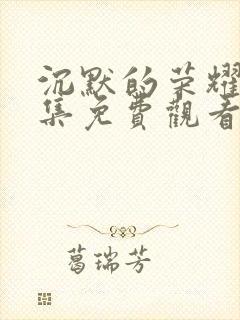 沉默的荣耀
集免費觀看
葛瑞芳